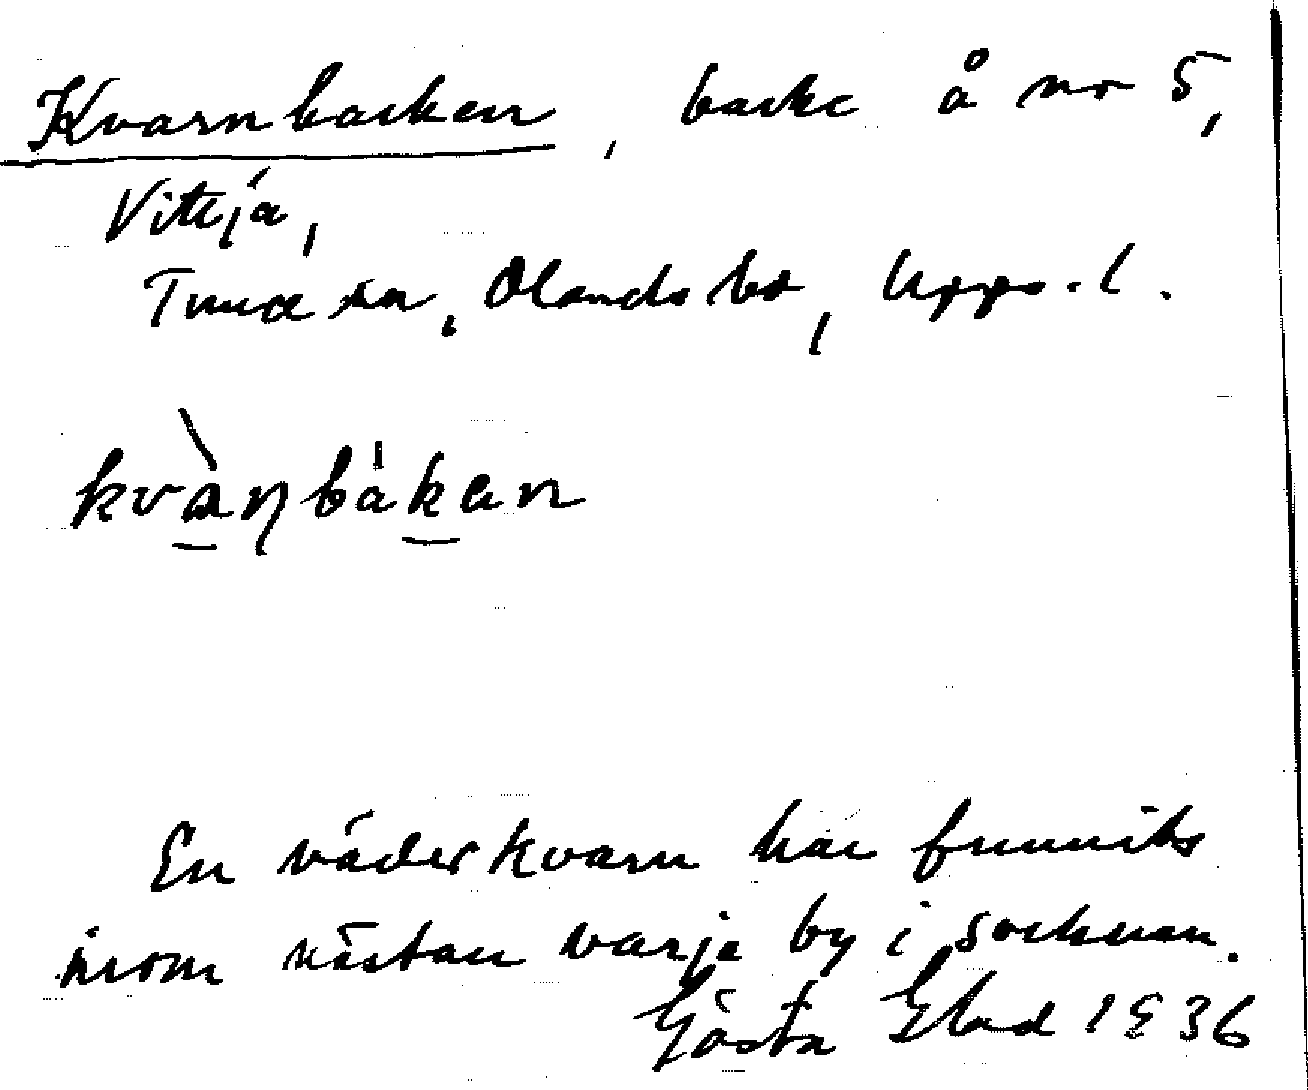 Kvarnbacken, backe å nr 5,
Vittja,
Tuna sn, Olands hd, Upps. l.
kvànbàkan
En väderkvarn har funnits
inom nästan varje by i socknen.
Gösta Elad 1936